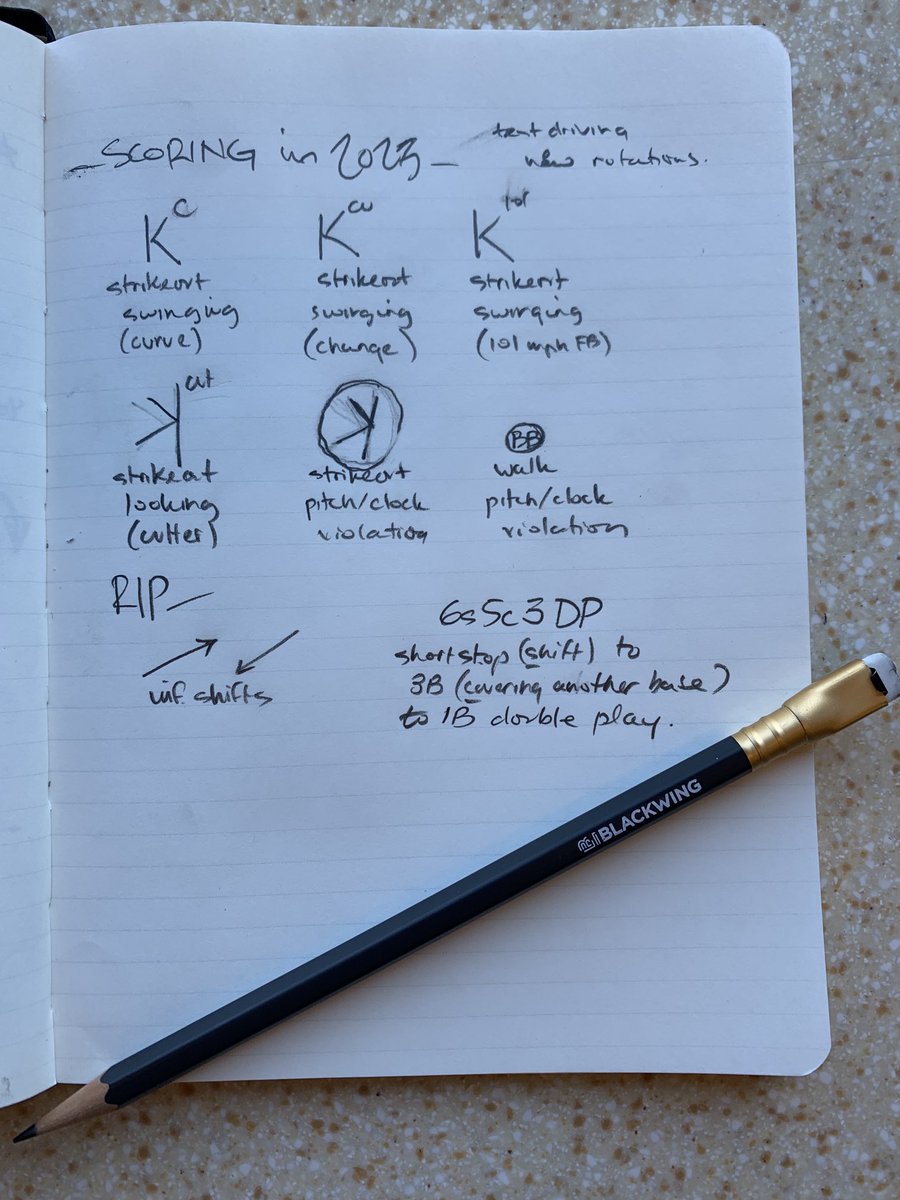 SCORING in 2023
test driving
new notations.
K^c
K^CH
K^101
strikeout
swinging
(curve)
strikeout
swinging
(change)
strikeout
swinging
(101 mph FB)
ꓘ^cut
strikeout
looking
(cutter)
ꓘ
strikeout
pitch/clock
violation
BB
walk
pitch/clock
violation
RIP—
inf. shifts
6s5c3 DP
shortstop (shift) to
3B (covering another base)
to 1B double play.
BLACKWING